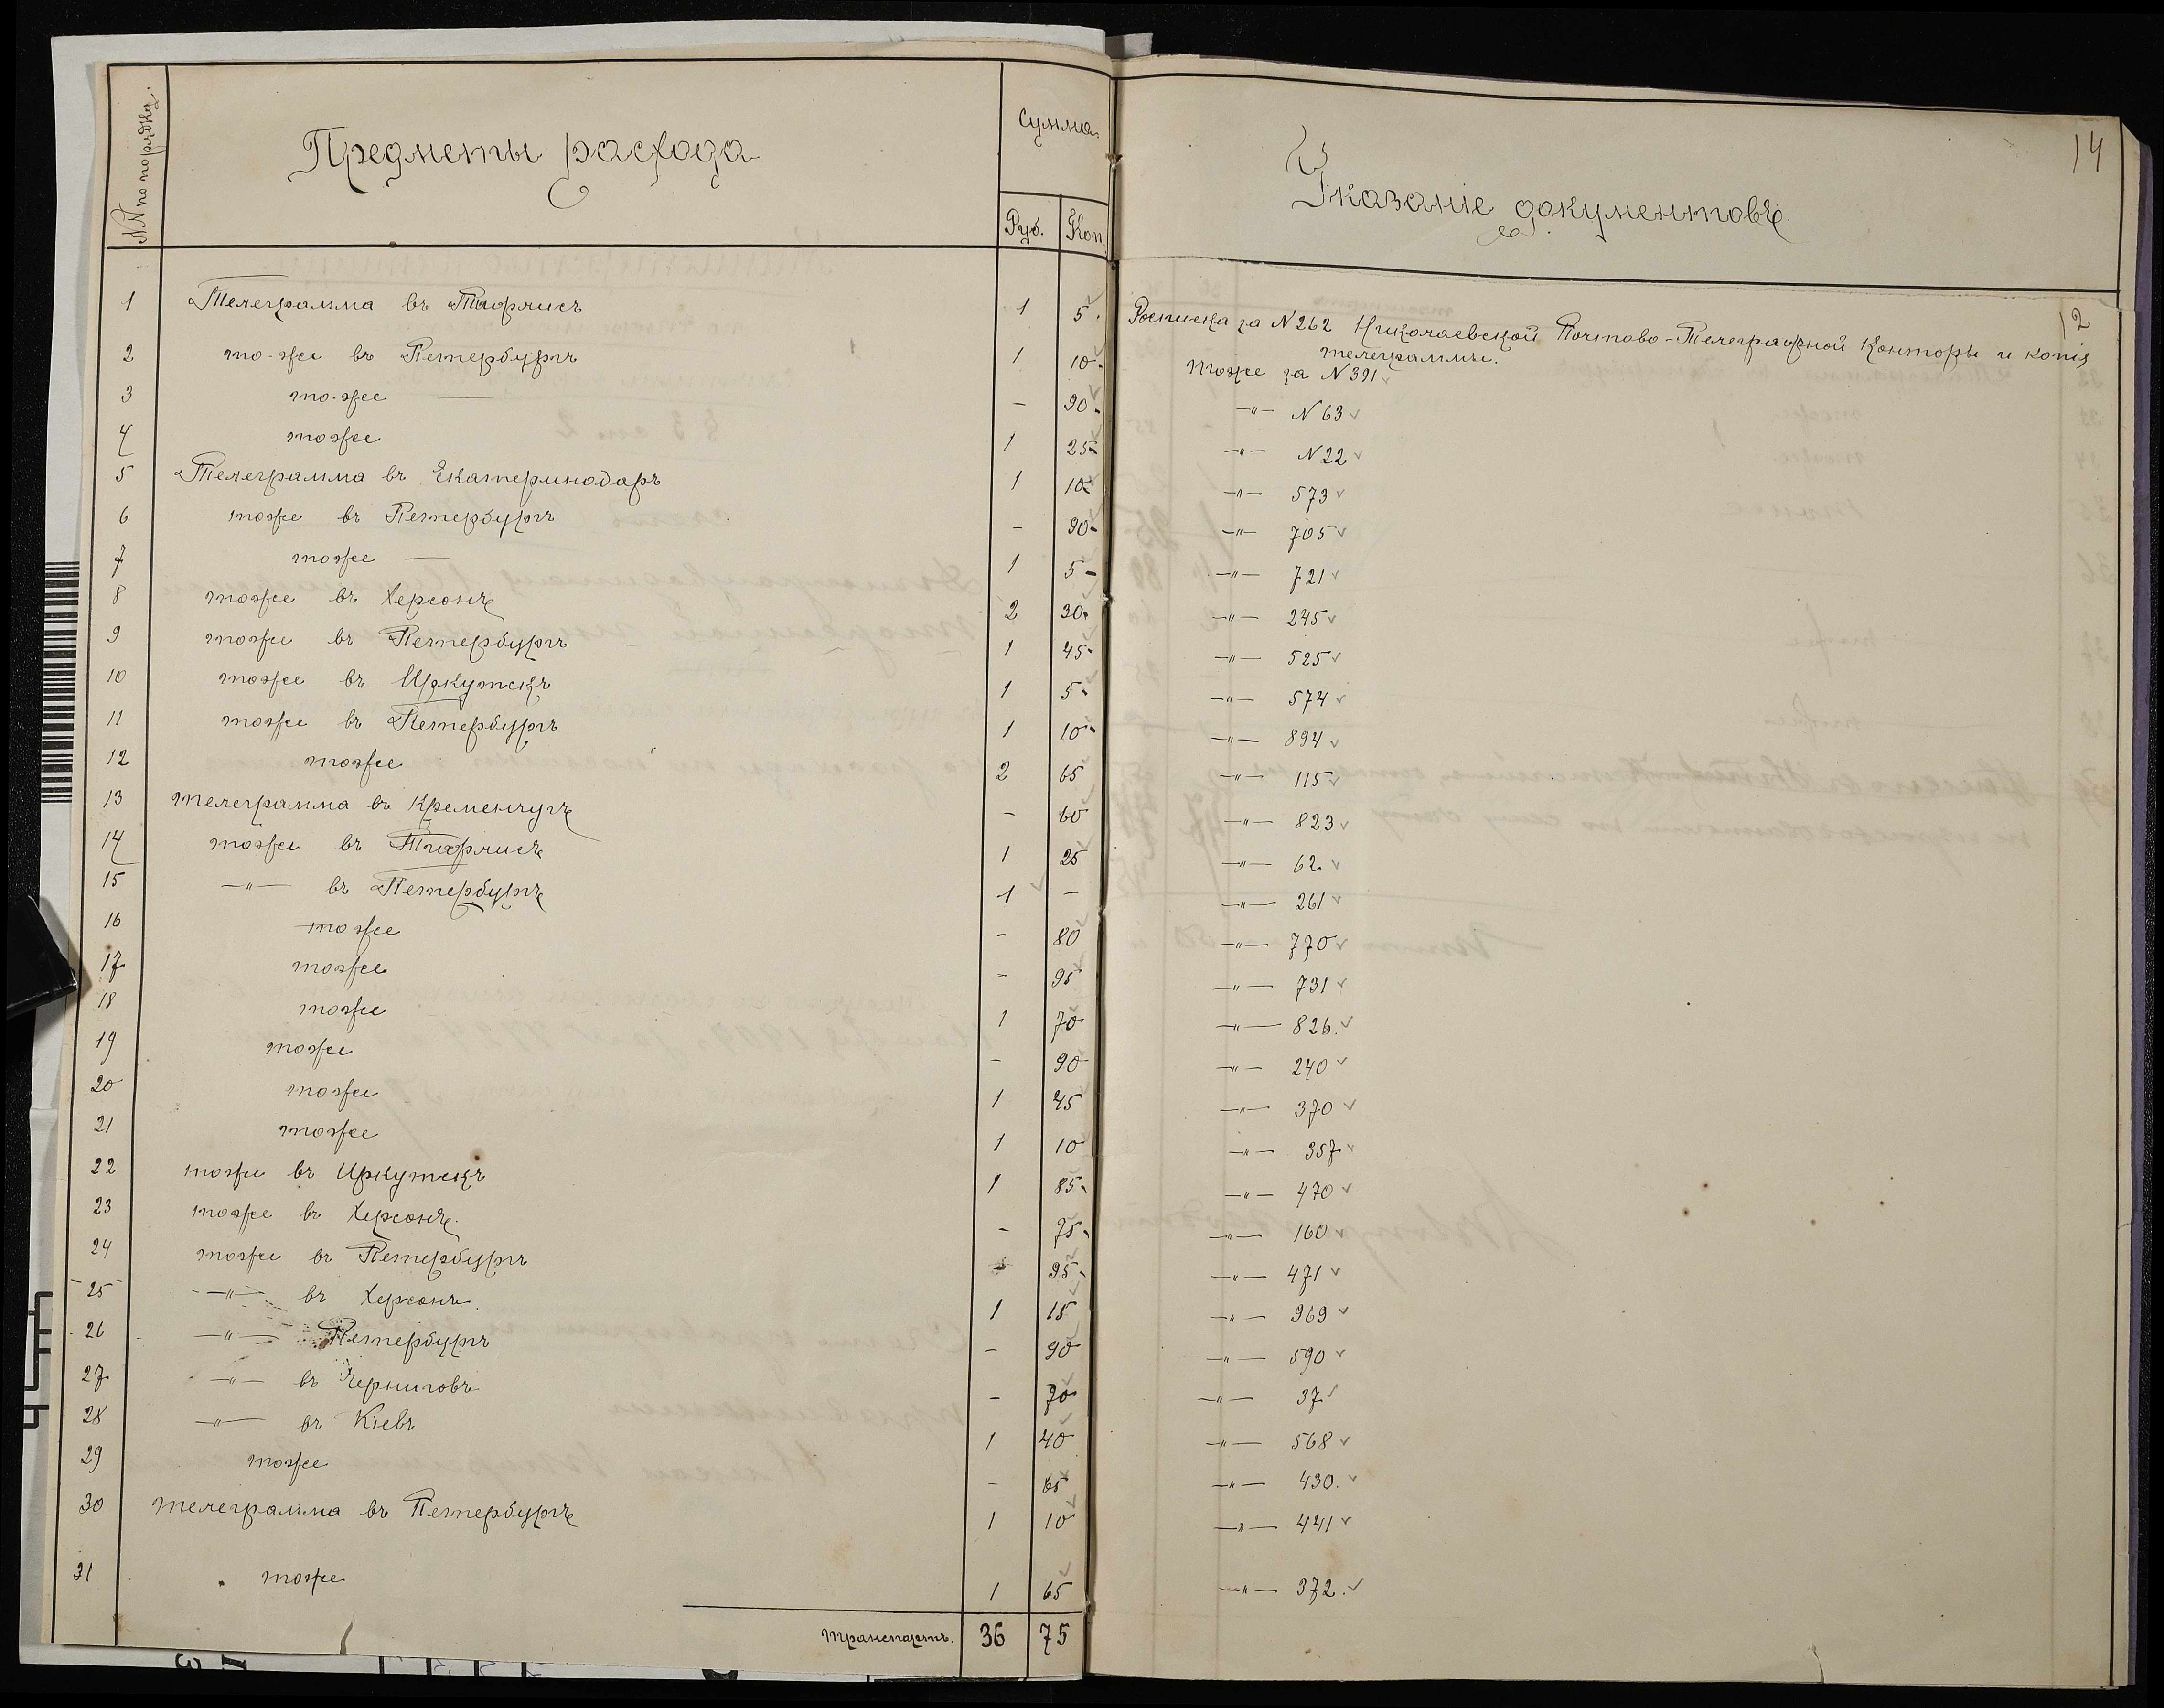 NN по порядку.
Предметы расхода
Сумма.
Руб. Коп.
1 Телеграмма въ Тифлисъ 1 5
2 то-же въ Петербургъ 1 10
3 то-же — - 90
4 тоже 1 25
5 Телеграмма въ Екатеринодаръ 1 10
6 тоже въ Петербургъ - 90
7 тоже — 1 5
8 тоже въ Херсонъ 2 30
9 тоже въ Петербургъ 1 45
10 тоже въ Иркутскъ 1 5
11 тоже въ Петербургъ 1 10
12 тоже 2 65
13 телеграмма въ Кременчугъ - 60
14 тоже въ Тифлисъ 1 25
15 —"— въ Петербургъ 1 -
16 тоже - 80
17 тоже - 95
18 тоже 1 70
19 тоже - 90
20 тоже 1 45
21 тоже 1 10
22 тоже въ Иркутскъ 1 85
23 тоже въ Херсонъ. - 75
24 тоже въ Петербургъ - 95
25 —"— въ Херсонъ. 1 15
26 —"— Петербургъ - 90
27 —"— въ Черниговъ - 70
28 —"— въ Кіевъ 1 40
29 тоже - 65
30 телеграмма въ Петербургъ 1 10
31 тоже 1 65
Транспортъ. 36 75
14
Указаніе документовъ.
12
Росписка за N 262 Николаевской Почтово-Телеграфной Конторы и копія
телеграммы.
тоже за N 391
—"— N 63
—"— N 22
—"— 573
—"— 705
—"— 721
—"— 245
—"— 525
—"— 574
—"— 894
—"— 115
—"— 823
—"— 62
—"— 261
—"— 770
—"— 731
—"— 826.
—"— 240
—"— 370
—"— 357
—"— 470
—"— 160
—"— 471
—"— 969
—"— 590
—"— 37
—"— 568
—"— 430.
—"— 441
—"— 372.